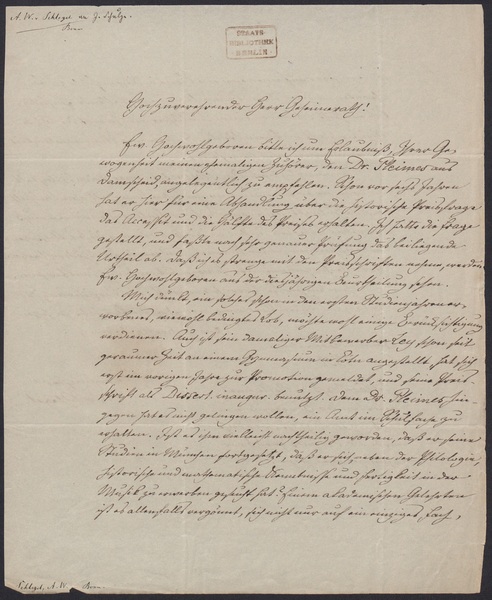 A. W. v. Schlegel an J. Schulze.
Bonn
STAATS-
BIBLIOTHEK
BERLIN
Hochzuverehrender Herr Geheimerath!
Ew. Hochwohlgeboren bitte ich um Erlaubniß, Ihrer Ge-
wogenheit meinen ehemaligen Zuhörer, den Dr. Kleimes aus
angelegentlich zu empfehlen. Schon vor sechs Jahren
hat er hier für eine Abhandlung über die historische Preisfrage
das Accessit und die Hälfte des Preises erhalten. Ich hatte die Frage
gestellt, und faßte nach sehr genauer Prüfung das beiliegende
Urtheil ab. Daß ich es strenge mit den Preisschriften nehme, werden
Ew. Hochwohlgeboren aus der dießjährigen Beurtheilung sehen.
Mich dünkt, ein solches schon in den ersten Studienjahren er-
worbenes, wiewohl bedingtes Lob, möchte wohl einige Berücksichtigung
verdienen. Auch ist sein damaliger Mitbewerber Ley schon seit
geraumer Zeit an einem Gymnasium in Cöln angestellt, hat sich
erst im vorigen Jahre zur Promotion gemeldet, und seine Preis-
schrift als Dissert. inaugur. benutzt. Dem Dr. Kleimes hin-
gegen hat es nicht gelingen wollen, ein Amt im Schulfache zu
erhalten. Ist es ihm vielleicht nachtheilig geworden, daß er seine
Studien in München fortgesetzt, daß er sich neben der Philologie
historische und mathematische Kenntnisse und Fertigkeit in der
Musik zu erwerben gesucht hat? Einem akademischen Gelehrten
ist es allenfalls vergönnt, sich nicht nur auf ein einziges Fach,
Schlegel, A. W. Bonn.